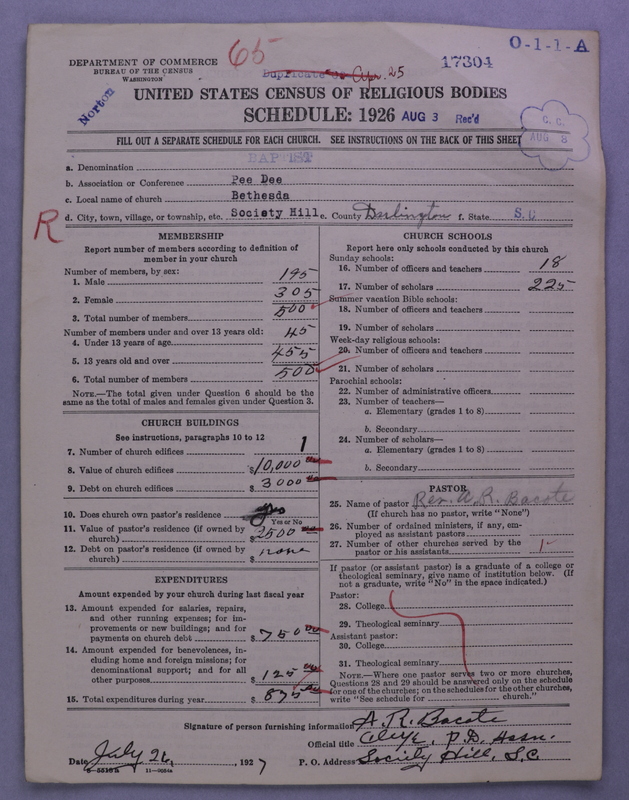 65
O-1-1-A
DEPARTMENT OF COMMERCE
BUREAU OF THE CENSUS
WASHINGTON
Apr. 25
17304
Norton
UNITED STATES CENSUS OF RELIGIOUS BODIES
SCHEDULE: 1926 AUG 3 Rec'd
C. C.
AUG 8
FILL OUT A SEPARATE SCHEDULE FOR EACH CHURCH. SEE INSTRUCTIONS ON THE BACK OF THIS SHEET
a. Denomination BAPTIST
b. Association or Conference Pee Dee
c. Local name of church Bethesda
R
d. City, town, village, or township, etc. Society Hill e. County Darlington f. State S. C
MEMBERSHIP
Report number of members according to definition of
member in your church
Number of members, by sex:
1. Male 195
2. Female 305
3. Total number of members 500
Number of members under and over 13 years old:
4. Under 13 years of age 45
5. 13 years old and over 455
6. Total number of members 500
NOTE.—The total given under Question 6 should be the
same as the total of males and females given under Question 3.
CHURCH BUILDINGS
See instructions, paragraphs 10 to 12
7. Number of church edifices 1
8. Value of church edifices $10,000
9. Debt on church edifices $ 3000
10. Does church own pastor's residence yes
Yes or No
11. Value of pastor's residence (if owned by
church) $ 2500
12. Debt on pastor's residence (if owned by
church) $ none
EXPENDITURES
Amount expended by your church during last fiscal year
13. Amount expended for salaries, repairs,
and other running expenses; for im-
provements or new buildings; and for
payments on church debt $ 750 00
14. Amount expended for benevolences, in-
cluding home and foreign missions; for
denominational support; and for all
other purposes $ 125 00
15. Total expenditures during year $ 875 00
CHURCH SCHOOLS
Report here only schools conducted by this church
Sunday schools:
16. Number of officers and teachers 18
17. Number of scholars 225
Summer vacation Bible schools:
18. Number of officers and teachers
19. Number of scholars
Week-day religious schools:
20. Number of officers and teachers
21. Number of scholars
Parochial schools:
22. Number of administrative officers
23. Number of teachers—
a. Elementary (grades 1 to 8)
b. Secondary
24. Number of scholars—
a. Elementary (grades 1 to 8)
b. Secondary
PASTOR
25. Name of pastor Rev. A. R. Bacote
(If church has no pastor, write "None")
26. Number of ordained ministers, if any, em-
ployed as assistant pastors
27. Number of other churches served by the
pastor or his assistants 1
If pastor (or assistant pastor) is a graduate of a college or
theological seminary, give name of institution below. (If
not a graduate, write "No" in the space indicated.)
Pastor:
28. College
29. Theological seminary
Assistant pastor:
30. College
31. Theological seminary
NOTE.—Where one pastor serves two or more churches,
Questions 28 and 29 should be answered only on the schedule
for one of the churches; on the schedules for the other churches,
write "See schedule for church."
Signature of person furnishing information A. R. Bacote
Official title Clerk, P.D. Assn.
Date July 26, 1927 P. O. Address Society Hill, S.C
8-5518a 11-9684a